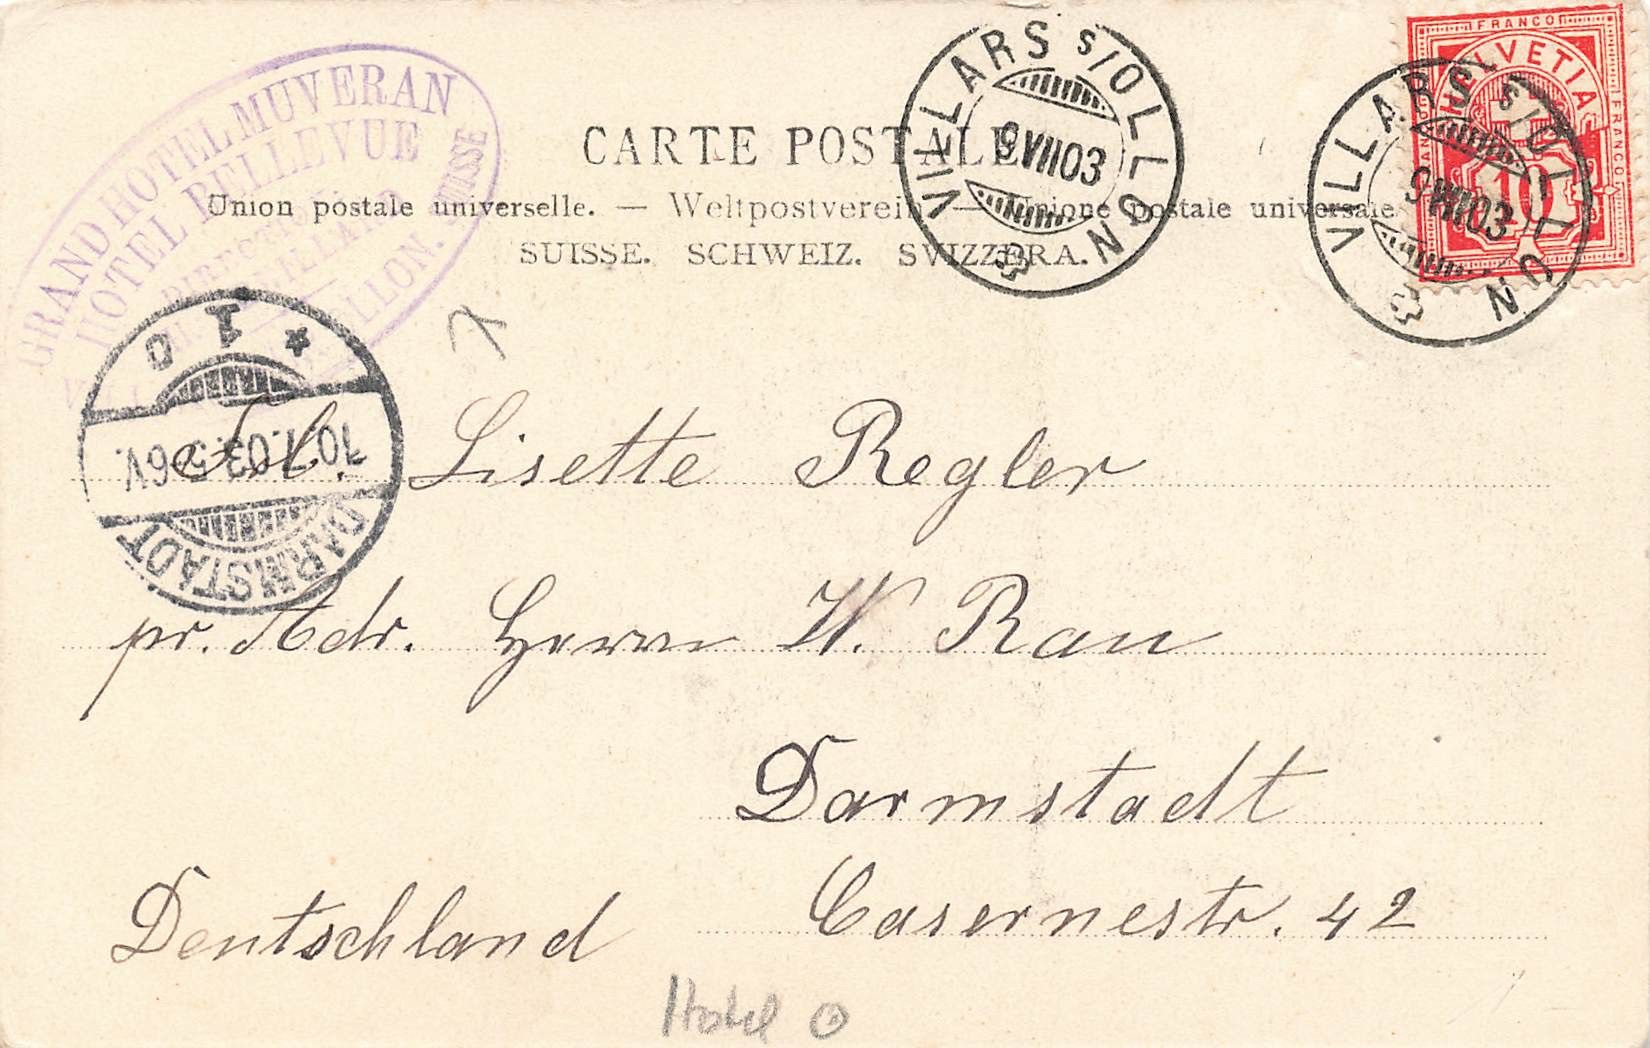 GRAND HOTEL MUVERAN
HOTEL BELLEVUE
SUISSE
CARTE POSTALE
Union postale universelle. — Weltpostverein — Unione postale universale
SUISSE. SCHWEIZ. SVIZZERA.
VILLARS s/OLLON
9 VII 03
VILLARS s/OLLON
9 VII 03
FRANCO
HELVETIA
FRANCO
FRANCO
10
DARMSTADT
10.7.03.5-6V.
* 1 D
Frl. Lisette Regler
pr. Adr. Herrn W. Rau
Darmstadt
Casernestr. 42
Deutschland
Hotel